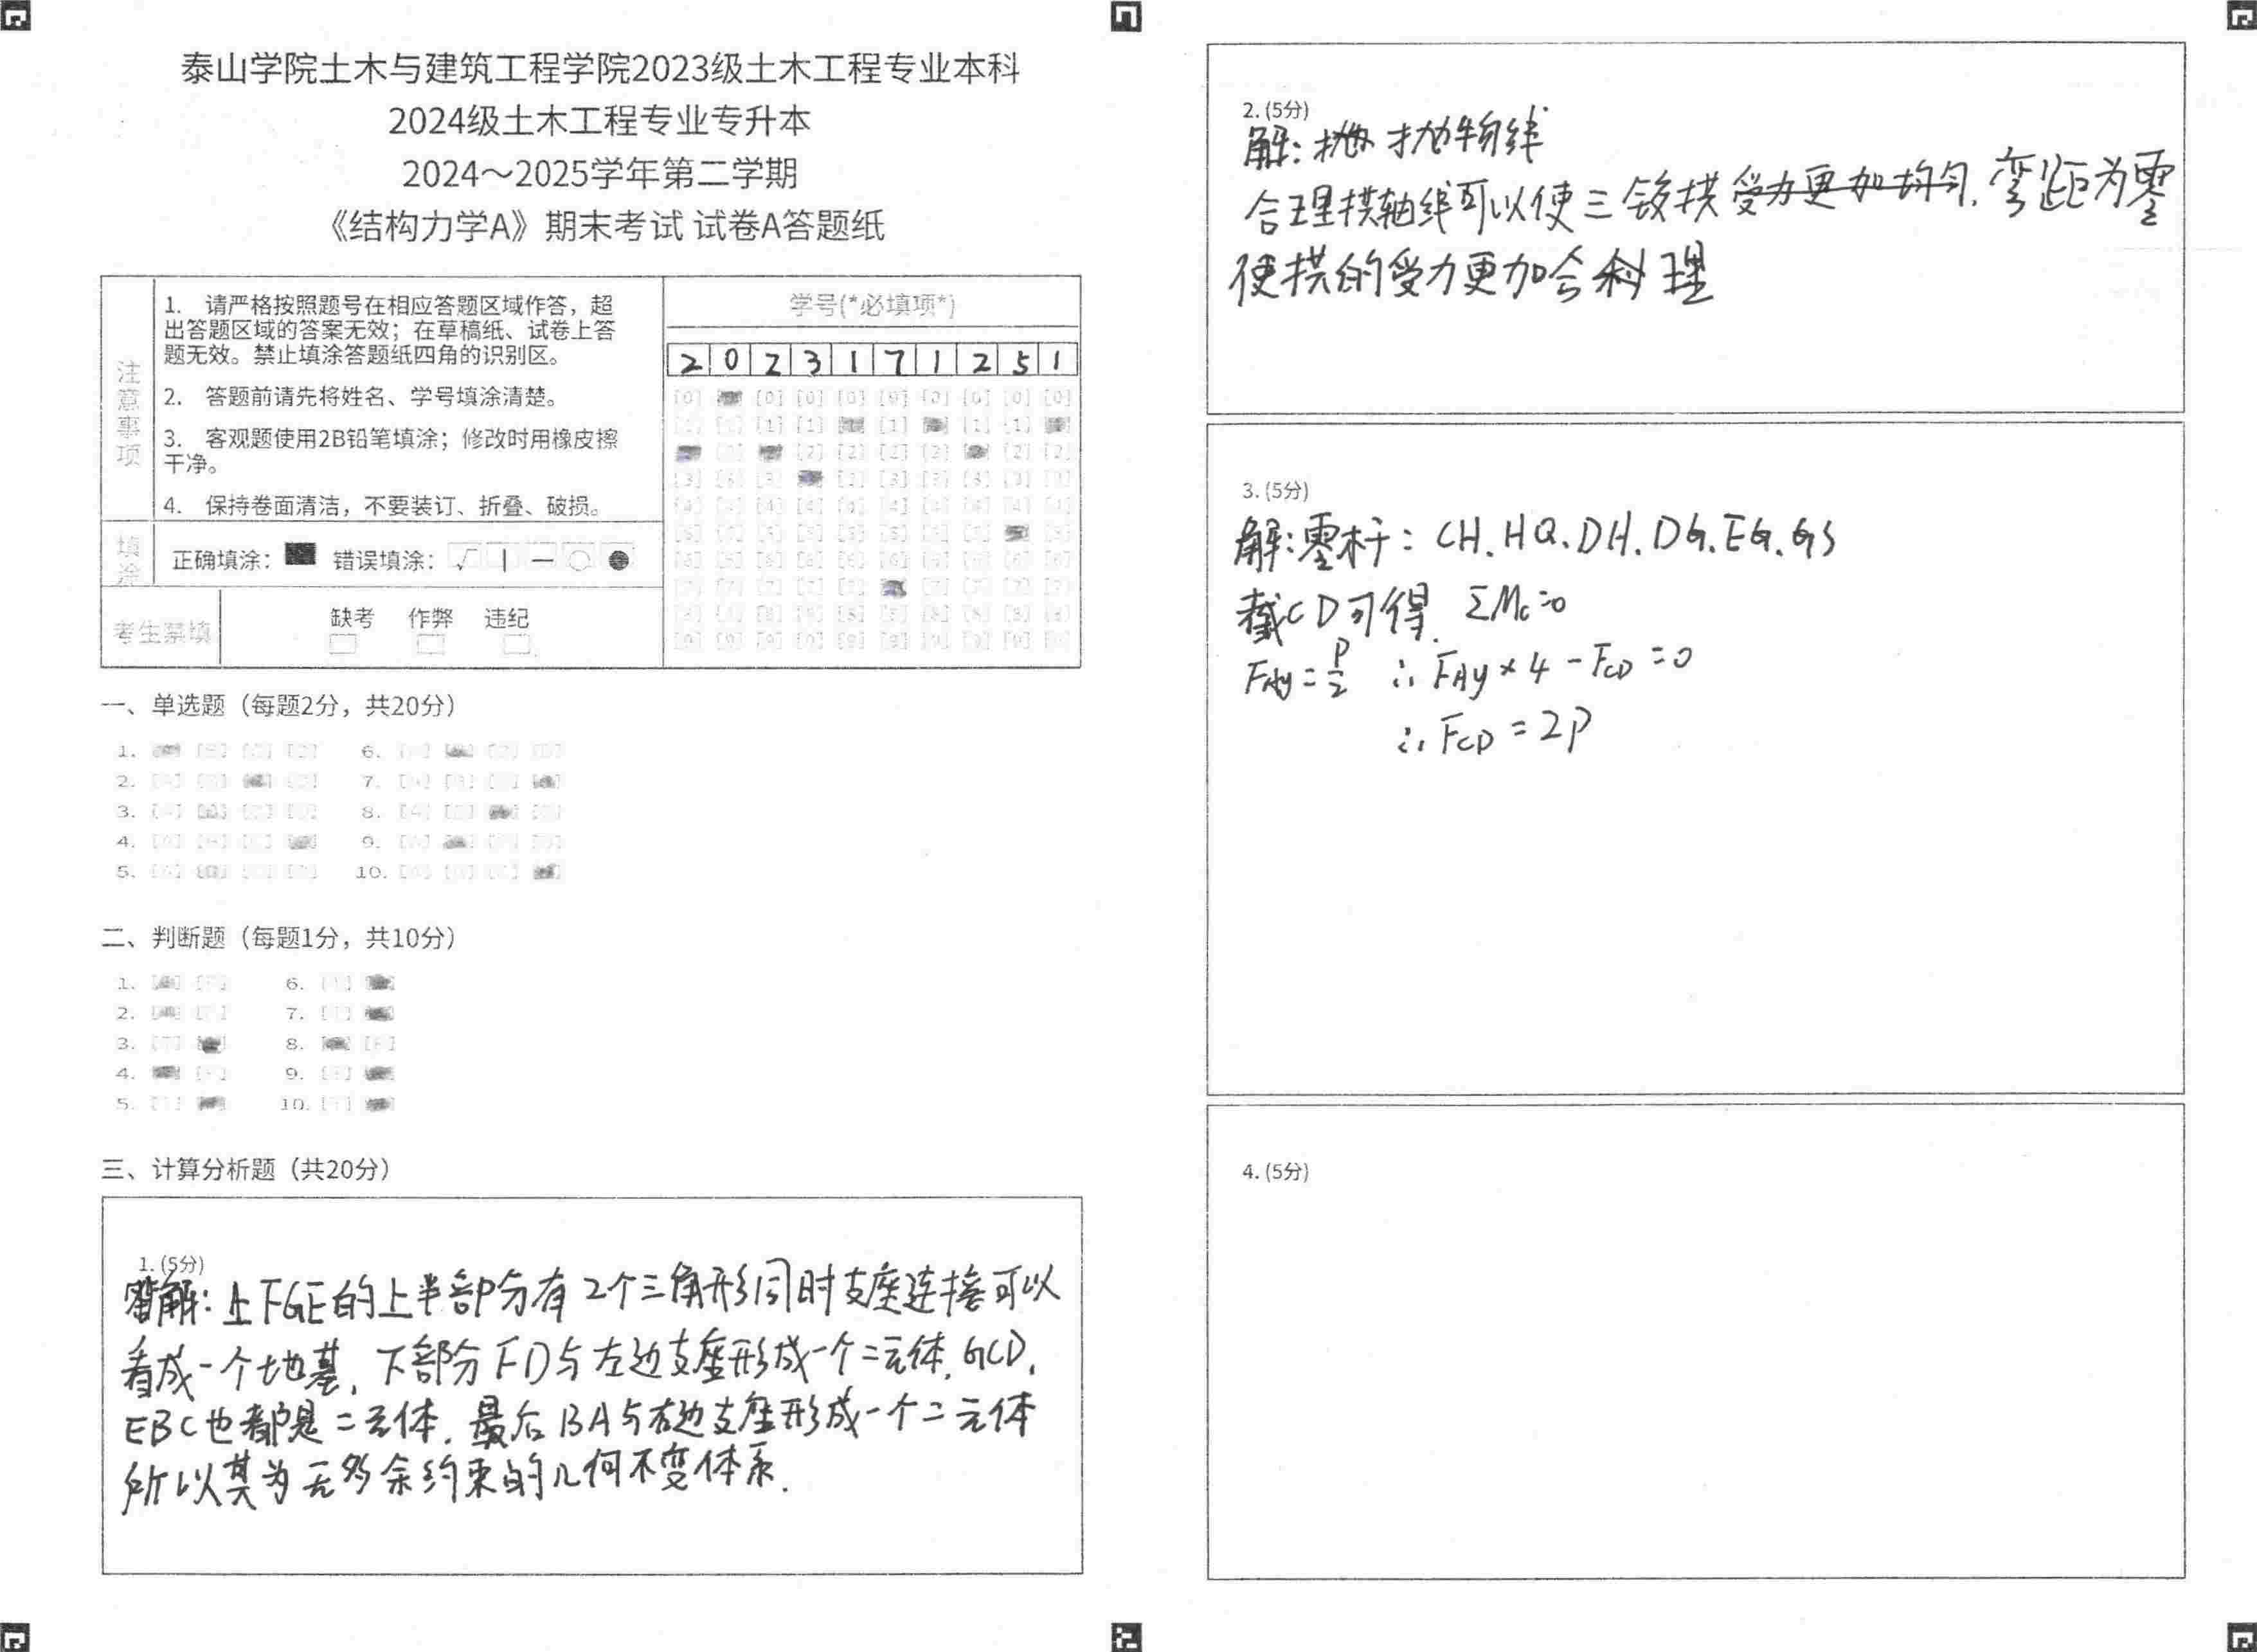 泰山学院土木与建筑工程学院2023级土木工程专业本科
2024级土木工程专业专升本
2024～2025学年第二学期
《结构力学A》期末考试 试卷A答题纸
注意事项
1. 请严格按照题号在相应答题区域作答，超
出答题区域的答案无效；在草稿纸、试卷上答
题无效。禁止填涂答题纸四角的识别区。
2. 答题前请先将姓名、学号填涂清楚。
3. 客观题使用2B铅笔填涂；修改时用橡皮擦
干净。
4. 保持卷面清洁，不要装订、折叠、破损。
填涂
正确填涂： 错误填涂：
考生禁填
缺考 作弊 违纪
学号(*必填项*)
2 0 2 3 1 7 1 2 5 1
一、单选题（每题2分，共20分）
1. 6.
2. 7.
3. 8.
4. 9.
5. 10.
二、判断题（每题1分，共10分）
1. 6.
2. 7.
3. 8.
4. 9.
5. 10.
三、计算分析题（共20分）
1. (5分)
解: 上FGE的上半部分有2个三角形同时支座连接可以
看成一个地基, 下部分FD与左边支座形成一个二元体, GCD,
EBC也都是二元体. 最后BA与右边支座形成一个二元体
所以其为无多余约束的几何不变体系.
2. (5分)
解: 抛物线
合理拱轴线可以使三铰拱受力更加均匀. 弯距为零
使拱的受力更加合理
3. (5分)
解: 零杆: CH. HQ. DH. DG. EG. GS
截CD可得. ΣMc=0
FAy=P/2 ∴ FAy×4-FCD=0
∴ FCD=2P
4. (5分)